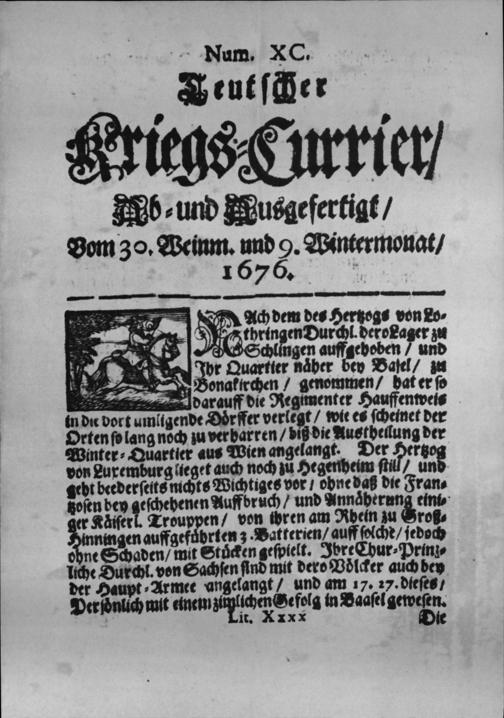 Num. XC.
Teutscher
Kriegs-Currier/
Ab- und Ausgefertigt/
Vom 30. Weinm. und 9. Wintermonat/
1676.
NAchdem des Hertzogs von Lo-
thringen Durchl. dero Lager zu
Schlingen auffgehoben / und
Ihr Quartier näher bey Basel / zu
Bonakirchen / genommen / hat er so
darauff die Regimenter Hauffenweis
in die dort umligende Dörffer verlegt / wie es scheinet der
Orten so lang noch zu verharren / biß die Austheilung der
Winter-Quartier aus Wien angelangt. Der Hertzog
von Luxemburg lieget auch noch zu Hegenheim still / und
geht beederseits nichts Wichtiges vor / ohne daß die Fran-
tzosen bey geschehenen Auffbruch / und Annäherung eini-
ger Käiserl. Trouppen / von ihren am Rhein zu Groß-
Hinningen auffgeführten 3. Batterien / auff solche / jedoch
ohne Schaden / mit Stücken gespielt. Ihre Chur-Prinz-
liche Durchl. von Sachsen sind mit dero Völcker auch bey
der Haupt-Armee angelangt / und am 17. 27. dieses /
Persönlich mit einem zimlichen Gefolg in Baasel gewesen.
Lit. Xxxx Die